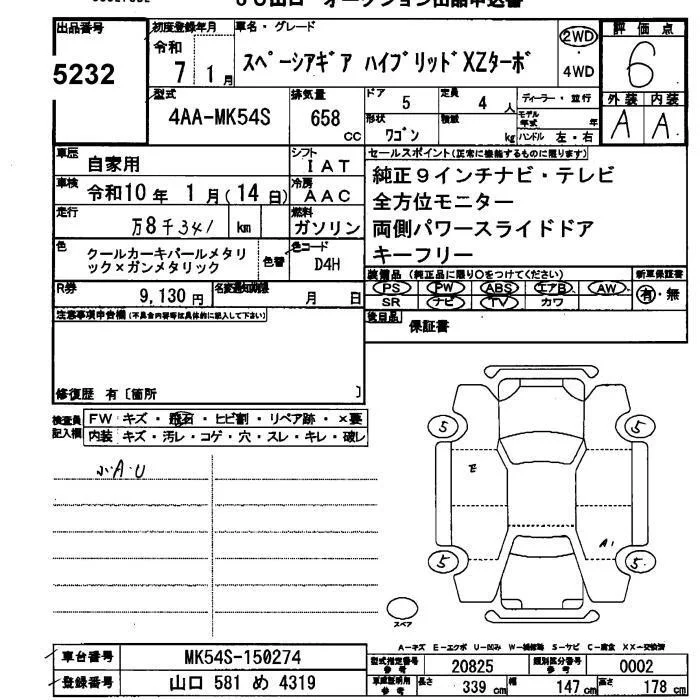 JU山口 オークション出品申込書
出品番号 初度登録年月 車名・グレード 評価点
5232 令和 7年 1月 スペーシアギア ハイブリッドXZターボ 2WD・4WD 6
型式 排気量 ドア 定員 ディーラー・並行 外装 内装
4AA-MK54S 658 CC 5 4人 モデル年式 年 A A
形状 積載
ワゴン kg ハンドル 左・右
車歴 自家用 シフト IAT セールスポイント(正常に機能するものに限ります)
車検 令和10年 1月(14日) 冷房 AAC 純正9インチナビ・テレビ
全方位モニター
走行 万8千341 km 燃料 ガソリン 両側パワースライドドア
色 クールカーキパールメタリ 色替 色コード キーフリー
ック×ガンメタリック D4H
装備品(純正品に限り〇をつけてください) 新車保証書
R券 9,130円 名変通知期限 月 日 PS PW ABS エアB AW 有・無
SR ナビ TV カワ
注意事項申告欄(不具合内容等は具体的に記入して下さい) 後日品 保証書
修復歴 有〔箇所 〕
検査員 FW キズ・飛石・ヒビ割・リペア跡・×要
記入欄 内装 キズ・汚レ・コゲ・穴・スレ・キレ・破レ
小A・U
5 5
E
A1
5 5
スペア
A-キズ E-エクボ U-凹み W-補修等 S-サビ C-腐食 XX-交換済
車台番号 MK54S-150274 型式指定番号 参考 20825 類別区分番号 参考 0002
登録番号 山口 581 め 4319 車庫証明用 参考 長さ 339 cm 幅 147 cm 高さ 178 cm